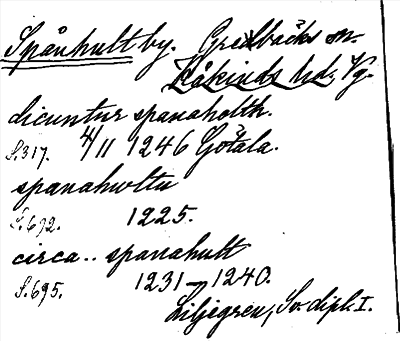 Spånhult by. Grelbäcks sn.
Kåkinds hd. Vg.
dicuntur spanaholth.
S.317. 4/11 1246 Götala.
spanahultu
S.692. 1225.
circa.. spanahult
S.695. 1231–1240.
Liljegren, Sv. dipl. I.